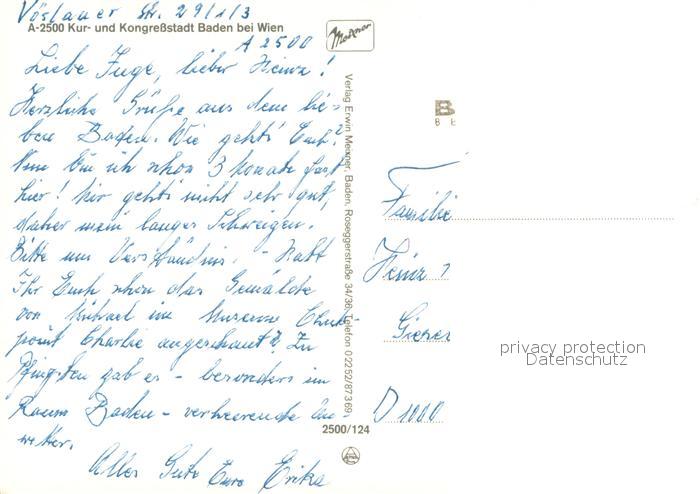 Vöslauer Str. 29/1/3
A-2500 Kur- und Kongreßstadt Baden bei Wien
A 2500
Liebe Inge, lieber Heinz!
Herzliche Grüße aus dem lie-
ben Baden. Wie geht's Euch?
Nun bin ich schon 3 Monate fast
hier! Mir geht's nicht sehr gut,
daher mein langes Schweigen.
Bitte um Verständnis. - Habt
Ihr Euch schon das Gemälde
von Michael im Museum Check-
point Charlie angeschaut? Zu
Pfingsten gab es - besonders im
Raum Baden - verheerende Un-
wetter.
Alles Gute Eure Erika
Verlag Erwin Mexner, Baden, Roseggerstraße 34/36, Telefon 02252/87369
2500/124
Mexner
Familie
Heinz
D 1000
privacy protection
Datenschutz